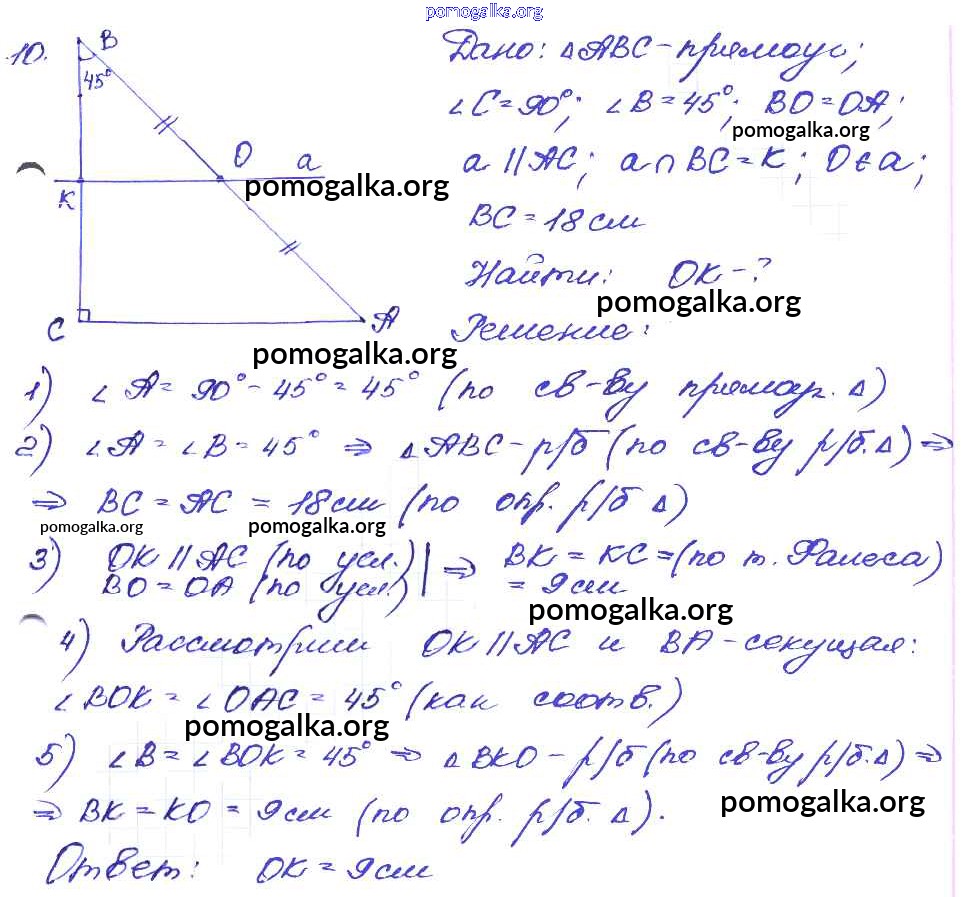 pomogalka.org
10.
B
45°
O
a
K
C
A
Дано: △ABC - прямоуг;
∠C = 90°; ∠B = 45°; BO = OA;
pomogalka.org
a || AC; a ∩ BC = K; O ∈ a;
pomogalka.org
BC = 18 см
Найти: OK - ?
pomogalka.org
Решение:
pomogalka.org
1) ∠A = 90° - 45° = 45° (по св-ву прямоуг. △)
2) ∠A = ∠B = 45° ⇒ △ABC - р/б (по св-ву р/б. △) ⇒
⇒ BC = AC = 18 см (по опр. р/б △)
pomogalka.org
pomogalka.org
3) OK || AC (по усл.) | ⇒ BK = KC = (по т. Фалеса)
BO = OA (по усл.) = 9 см
pomogalka.org
4) Рассмотрим OK || AC и BA - секущая:
∠BOK = ∠OAC = 45° (как соотв.)
pomogalka.org
5) ∠B = ∠BOK = 45° ⇒ △BKO - р/б (по св-ву р/б. △) ⇒
⇒ BK = KO = 9 см (по опр. р/б. △).
pomogalka.org
Ответ: OK = 9 см